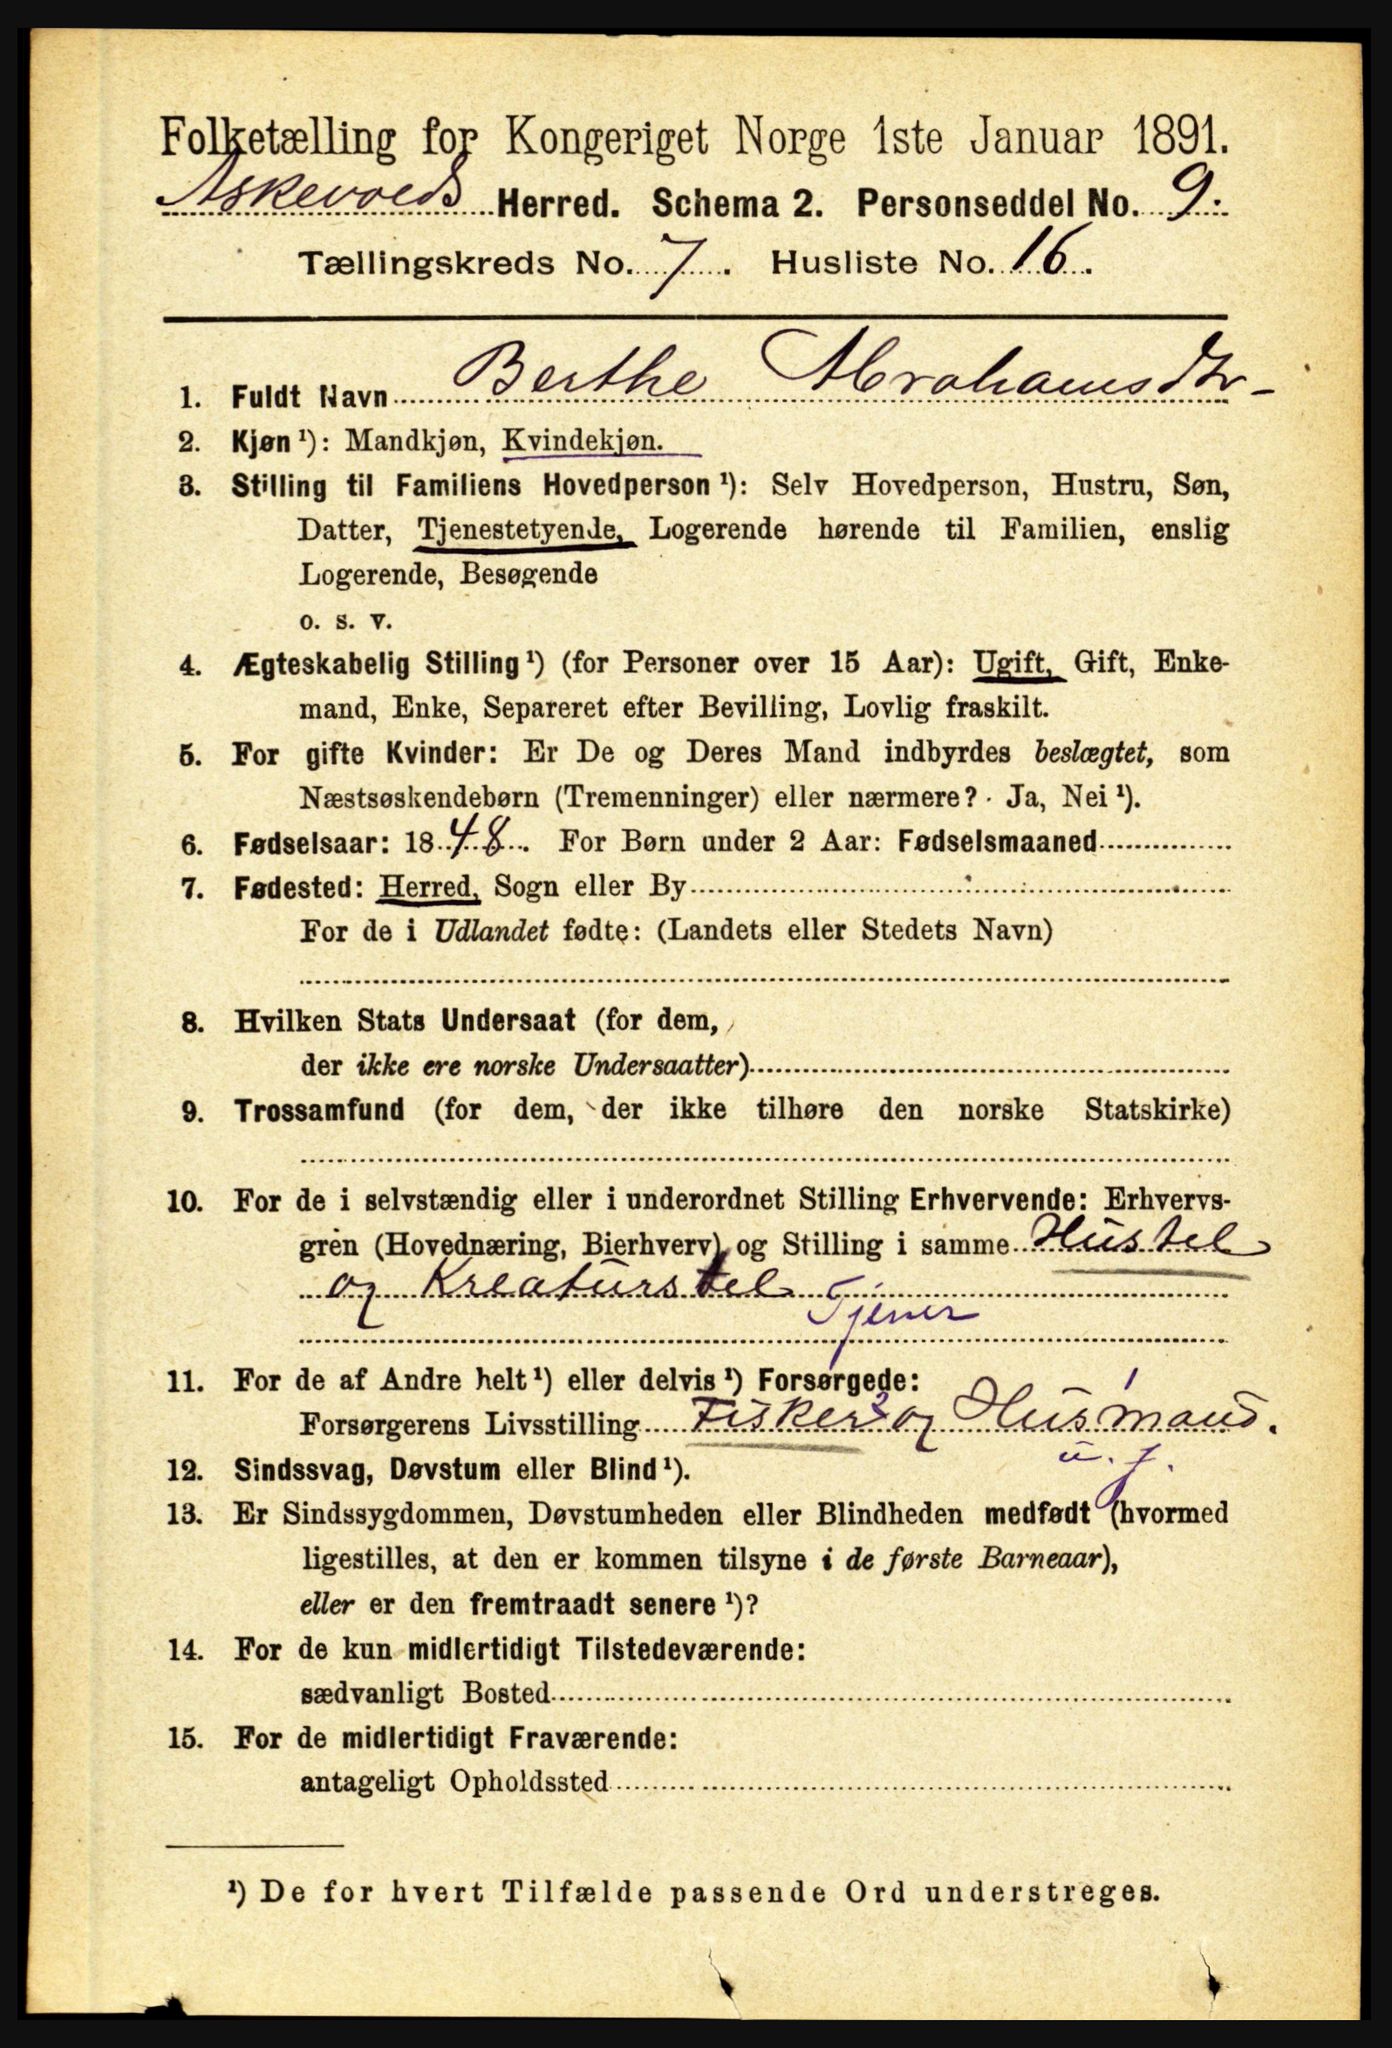 Folketælling for Kongeriget Norge 1ste Januar 1891.
Askevolds Herred. Schema 2. Personseddel No. 9.
Tællingskreds No. 7. Husliste No. 16.
1. Fuldt Navn Berthe Abrahamsdtr
2. Kjøn ¹): Mandkjøn, Kvindekjøn.
3. Stilling til Familiens Hovedperson ¹): Selv Hovedperson, Hustru, Søn,
Datter, Tjenestetyende, Logerende hørende til Familien, enslig
Logerende, Besøgende
o. s. v.
4. Ægteskabelig Stilling ¹) (for Personer over 15 Aar): Ugift, Gift, Enke-
mand, Enke, Separeret efter Bevilling, Lovlig fraskilt.
5. For gifte Kvinder: Er De og Deres Mand indbyrdes beslægtet, som
Næstsøskendebørn (Tremenninger) eller nærmere? Ja, Nei ¹).
6. Fødselsaar: 1848. For Børn under 2 Aar: Fødselsmaaned
7. Fødested: Herred, Sogn eller By
For de i Udlandet fødte: (Landets eller Stedets Navn)
8. Hvilken Stats Undersaat (for dem,
der ikke ere norske Undersaatter)
9. Trossamfund (for dem, der ikke tilhøre den norske Statskirke)
10. For de i selvstændig eller i underordnet Stilling Erhvervende: Erhvervs-
gren (Hovednæring, Bierhverv) og Stilling i samme Hustel
og Kreaturstel
Tjener
11. For de af Andre helt ¹) eller delvis ¹) Forsørgede:
Forsørgerens Livsstilling Fisker 2 og Husmand. 1
u. j.
12. Sindssvag, Døvstum eller Blind ¹).
13. Er Sindssygdommen, Døvstumheden eller Blindheden medfødt (hvormed
ligestilles, at den er kommen tilsyne i de første Barneaar),
eller er den fremtraadt senere ¹)?
14. For de kun midlertidigt Tilstedeværende:
sædvanligt Bosted
15. For de midlertidigt Fraværende:
antageligt Opholdssted
¹) De for hvert Tilfælde passende Ord understreges.